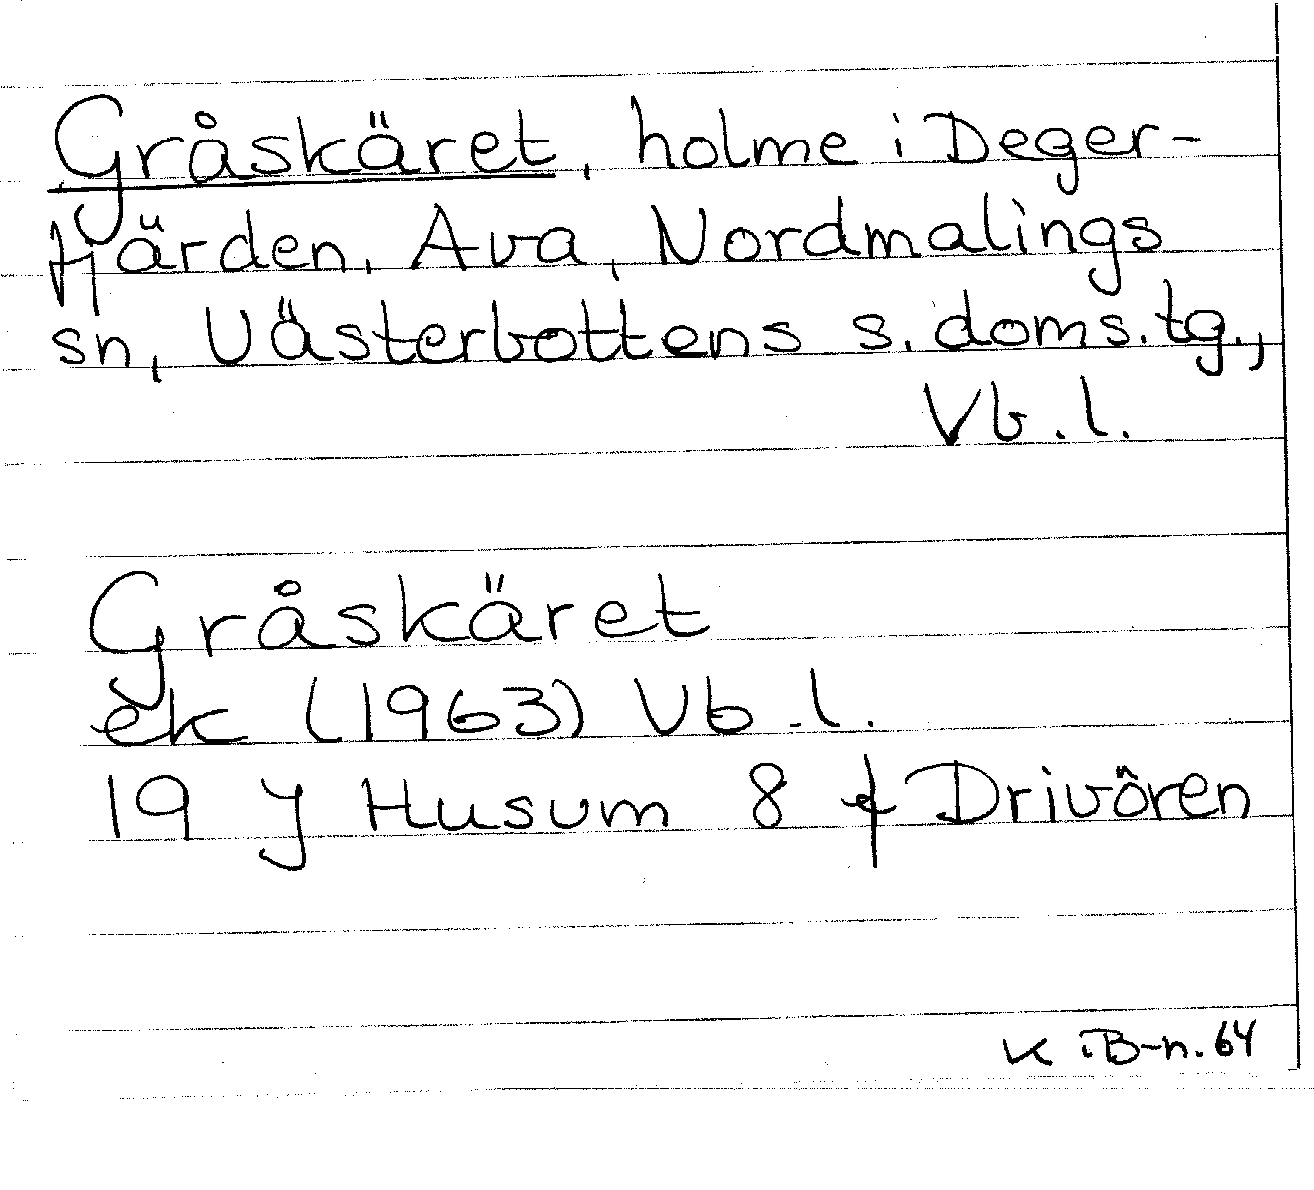 Gråskäret, holme i Deger-
fjärden, Ava, Nordmalings
sn, Västerbottens s. doms.tg.,
Vb.l.
Gråskäret
ek (1963) Vb.l.
19 J Husum 8 f Drivören
K iB-n.64